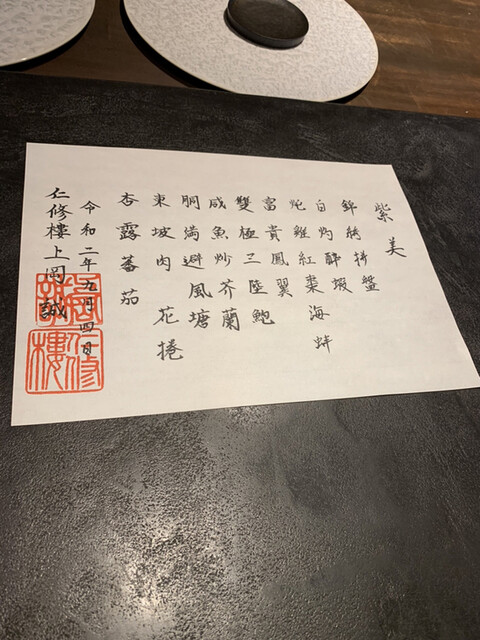 紫美
錦繍拼盤
白灼酔蝦
炖雞紅棗海蚌
富貴鳳翼
雙極三陸鮑
咸魚炒芥蘭
胴満避風塘
東坡肉 花捲
杏露蕃茄
令和二年五月四日
仁修樓上岡誠